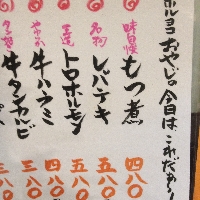 ホルヨコおやじの今日は、これだぁ〜!
味自慢 もつ煮 四八〇
名物 レバテキ 五八〇
王道 トロホルモン 五八〇
やわらか 牛ハラミ 四八〇
牛タンカルビ 三八〇
三八〇